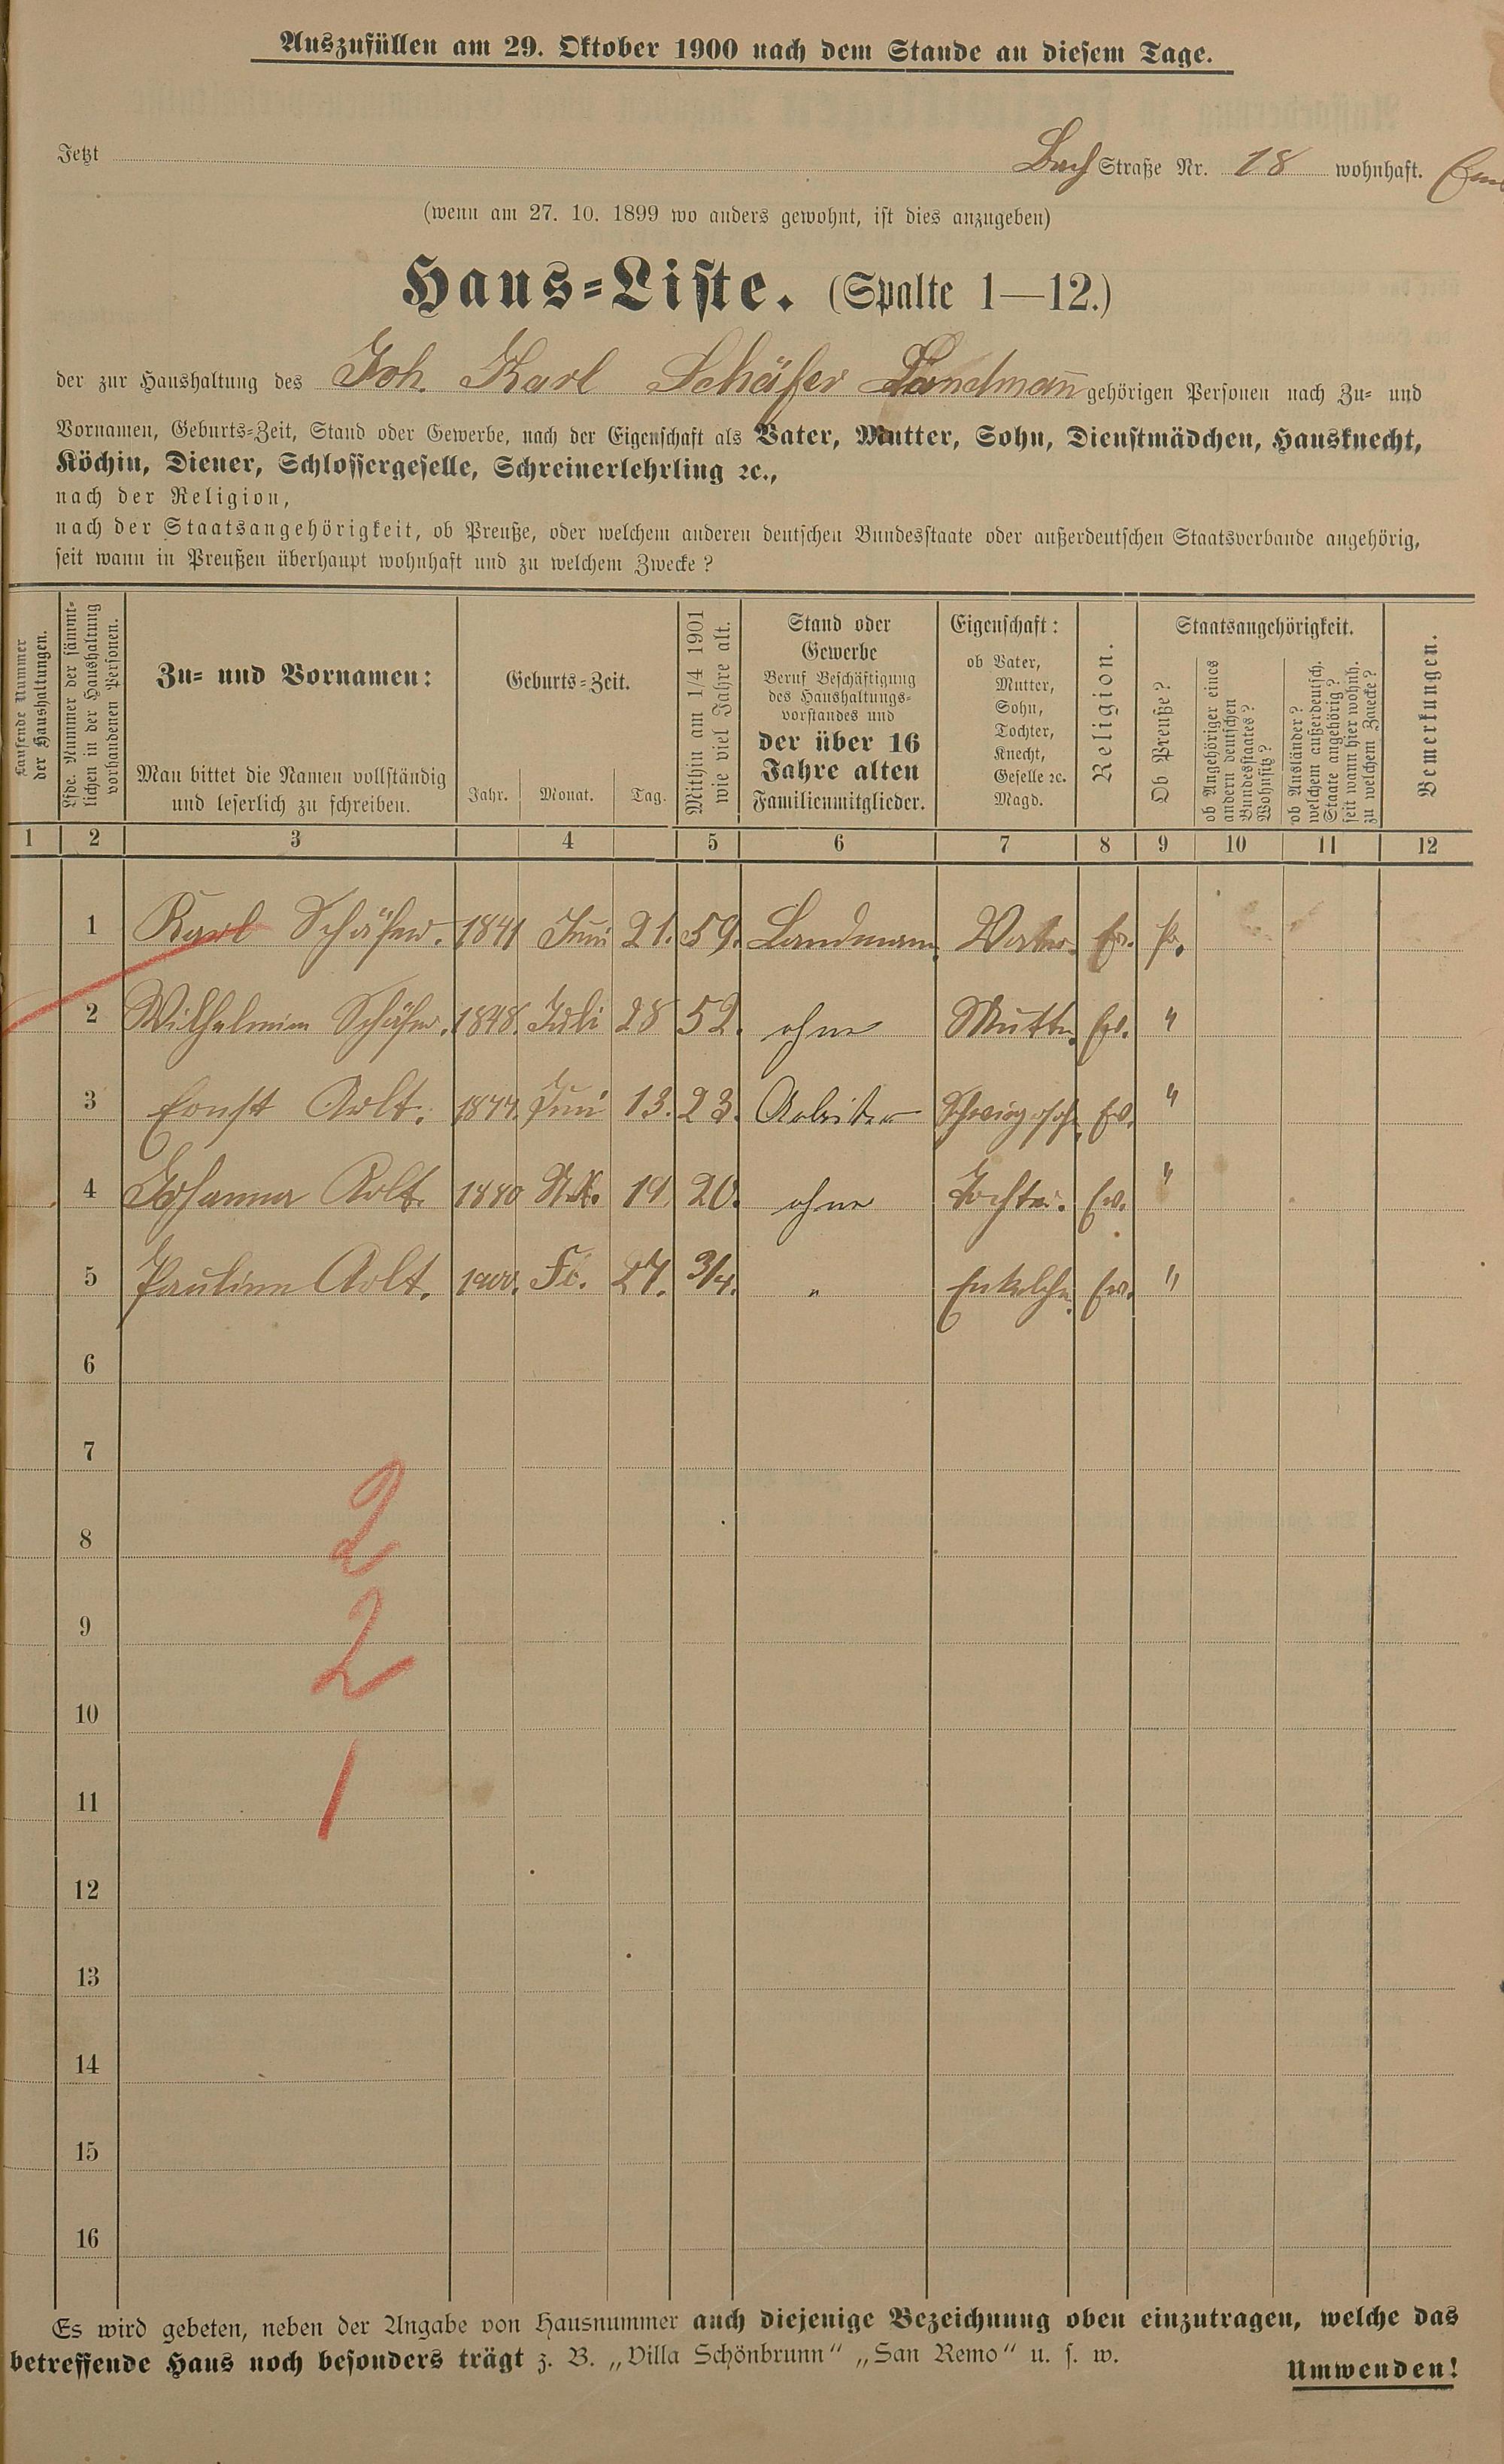 Auszufüllen am 29. Oktober 1900 nach dem Stande an diesem Tage.
Jetzt Bach Straße Nr. 18 wohnhaft.
(wenn am 27. 10. 1899 wo anders gewohnt, ist dies anzugeben)
Haus-Liste. (Spalte 1—12.)
der zur Haushaltung des Joh. Karl Schäfer Landmann gehörigen Personen nach Zu- und
Vornamen, Geburts-Zeit, Stand oder Gewerbe, nach der Eigenschaft als Vater, Mutter, Sohn, Dienstmädchen, Hausknecht,
Köchin, Diener, Schlossergeselle, Schreinerlehrling ꝛc.,
nach der Religion,
nach der Staatsangehörigkeit, ob Preuße, oder welchem anderen deutschen Bundesstaate oder außerdeutschen Staatsverbande angehörig,
seit wann in Preußen überhaupt wohnhaft und zu welchem Zwecke?
Laufende Nummer
der Haushaltungen.
Lfde. Nummer der sämmt-
lichen in der Haushaltung
vorhandenen Personen.
Zu- und Vornamen:
Man bittet die Namen vollständig
und leserlich zu schreiben.
Geburts-Zeit.
Jahr. Monat. Tag.
Mithin am 1/4 1901
wie viel Jahre alt.
Stand oder
Gewerbe
Beruf Beschäftigung
des Haushaltungs-
vorstandes und
der über 16
Jahre alten
Familienmitglieder.
Eigenschaft:
ob Vater,
Mutter,
Sohn,
Tochter,
Knecht,
Geselle ꝛc.
Magd.
Religion.
Staatsangehörigkeit.
Ob Preuße?
ob Angehöriger eines
andern deutschen
Bundesstaates?
Wohnsitz?
ob Ausländer?
welchem außerdeutsch.
Staate angehörig?
seit wann hier wohnh.
zu welchem Zwecke?
Bemerkungen.
1 2 3 4 5 6 7 8 9 10 11 12
1 Karl Schäfer. 1841 Juni 21. 59. Landmann Vater Ev. Pr.
2 Wilhelmine Schäfer. 1848. Juli 28 52. ohne Mutter Ev. "
3 Ernst Arlt. 1877. Juni 13. 23. Arbeiter Schwiegersohn Ev. "
4 Johanna Arlt. 1880 14 20. ohne Tochter. Ev. "
5 Pauline Arlt. 1900. 27. 3/4. " Enkelchen Ev. "
6
7
8
2
9
2
10
11
1
12
13
14
15
16
Es wird gebeten, neben der Angabe von Hausnummer auch diejenige Bezeichnung oben einzutragen, welche das
betreffende Haus noch besonders trägt z. B. „Villa Schönbrunn" „San Remo" u. s. w.
Umwenden!